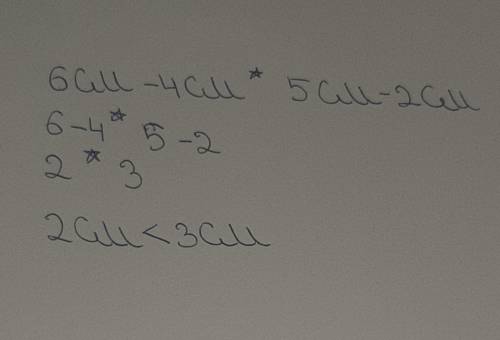 6см-4см* 5см-2см
6-4* 5-2
2 * 3
2см<3см